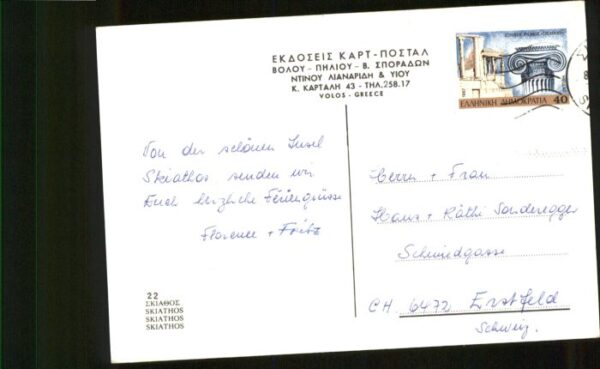 ΕΚΔΟΣΕΙΣ ΚΑΡΤ-ΠΟΣΤΑΛ
ΒΟΛΟΥ - ΠΗΛΙΟΥ - Β. ΣΠΟΡΑΔΩΝ
ΝΤΙΝΟΥ ΛΙΑΝΑΡΙΔΗ & ΥΙΟΥ
Κ. ΚΑΡΤΑΛΗ 43 - ΤΗΛ.258.17
VOLOS - GREECE
ΕΛΛΗΝΙΚΗ ΔΗΜΟΚΡΑΤΙΑ 40
Von der schönen Insel
Skiathos senden wir
Euch herzliche Feriengrüsse
Florence + Fritz
Herrn + Frau
Hans + Käthi Sonderegger
Schmiedgasse
CH 6472 Erstfeld
Schweiz.
22
ΣΚΙΑΘΟΣ
SKIATHOS
SKIATHOS
SKIATHOS